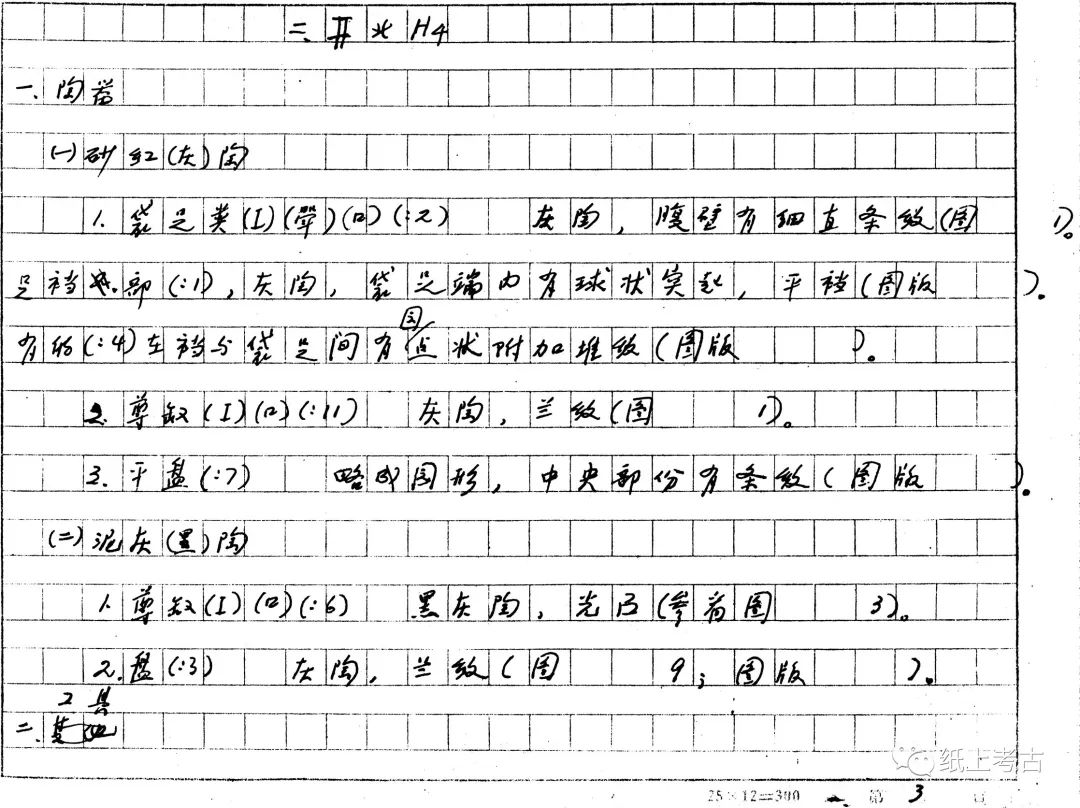 二、开北H4
一、陶器
(一)砂红(灰)陶
1.袋足类(I)(斝)(口)(:2) 灰陶,腹壁有细直条纹(图 1)。
足裆部(:1),灰陶,袋足端内有球状突起,平裆(图版 )。
有的(:4)在裆与袋足间有圆点状附加堆纹(图版 )。
2.尊缶(I)(口)(:11) 灰陶,兰纹(图 1)。
3.平盘(:7) 略成园形,中央部份有条纹(图版 )。
(二)泥灰(黑)陶
1.尊缶(I)(口)(:6) 黑灰陶,光面(参看图 3)。
2.盘(:3) 灰陶,兰纹(图 9;图版 )。
二.工具
纸上考古
25×12=300 第3页